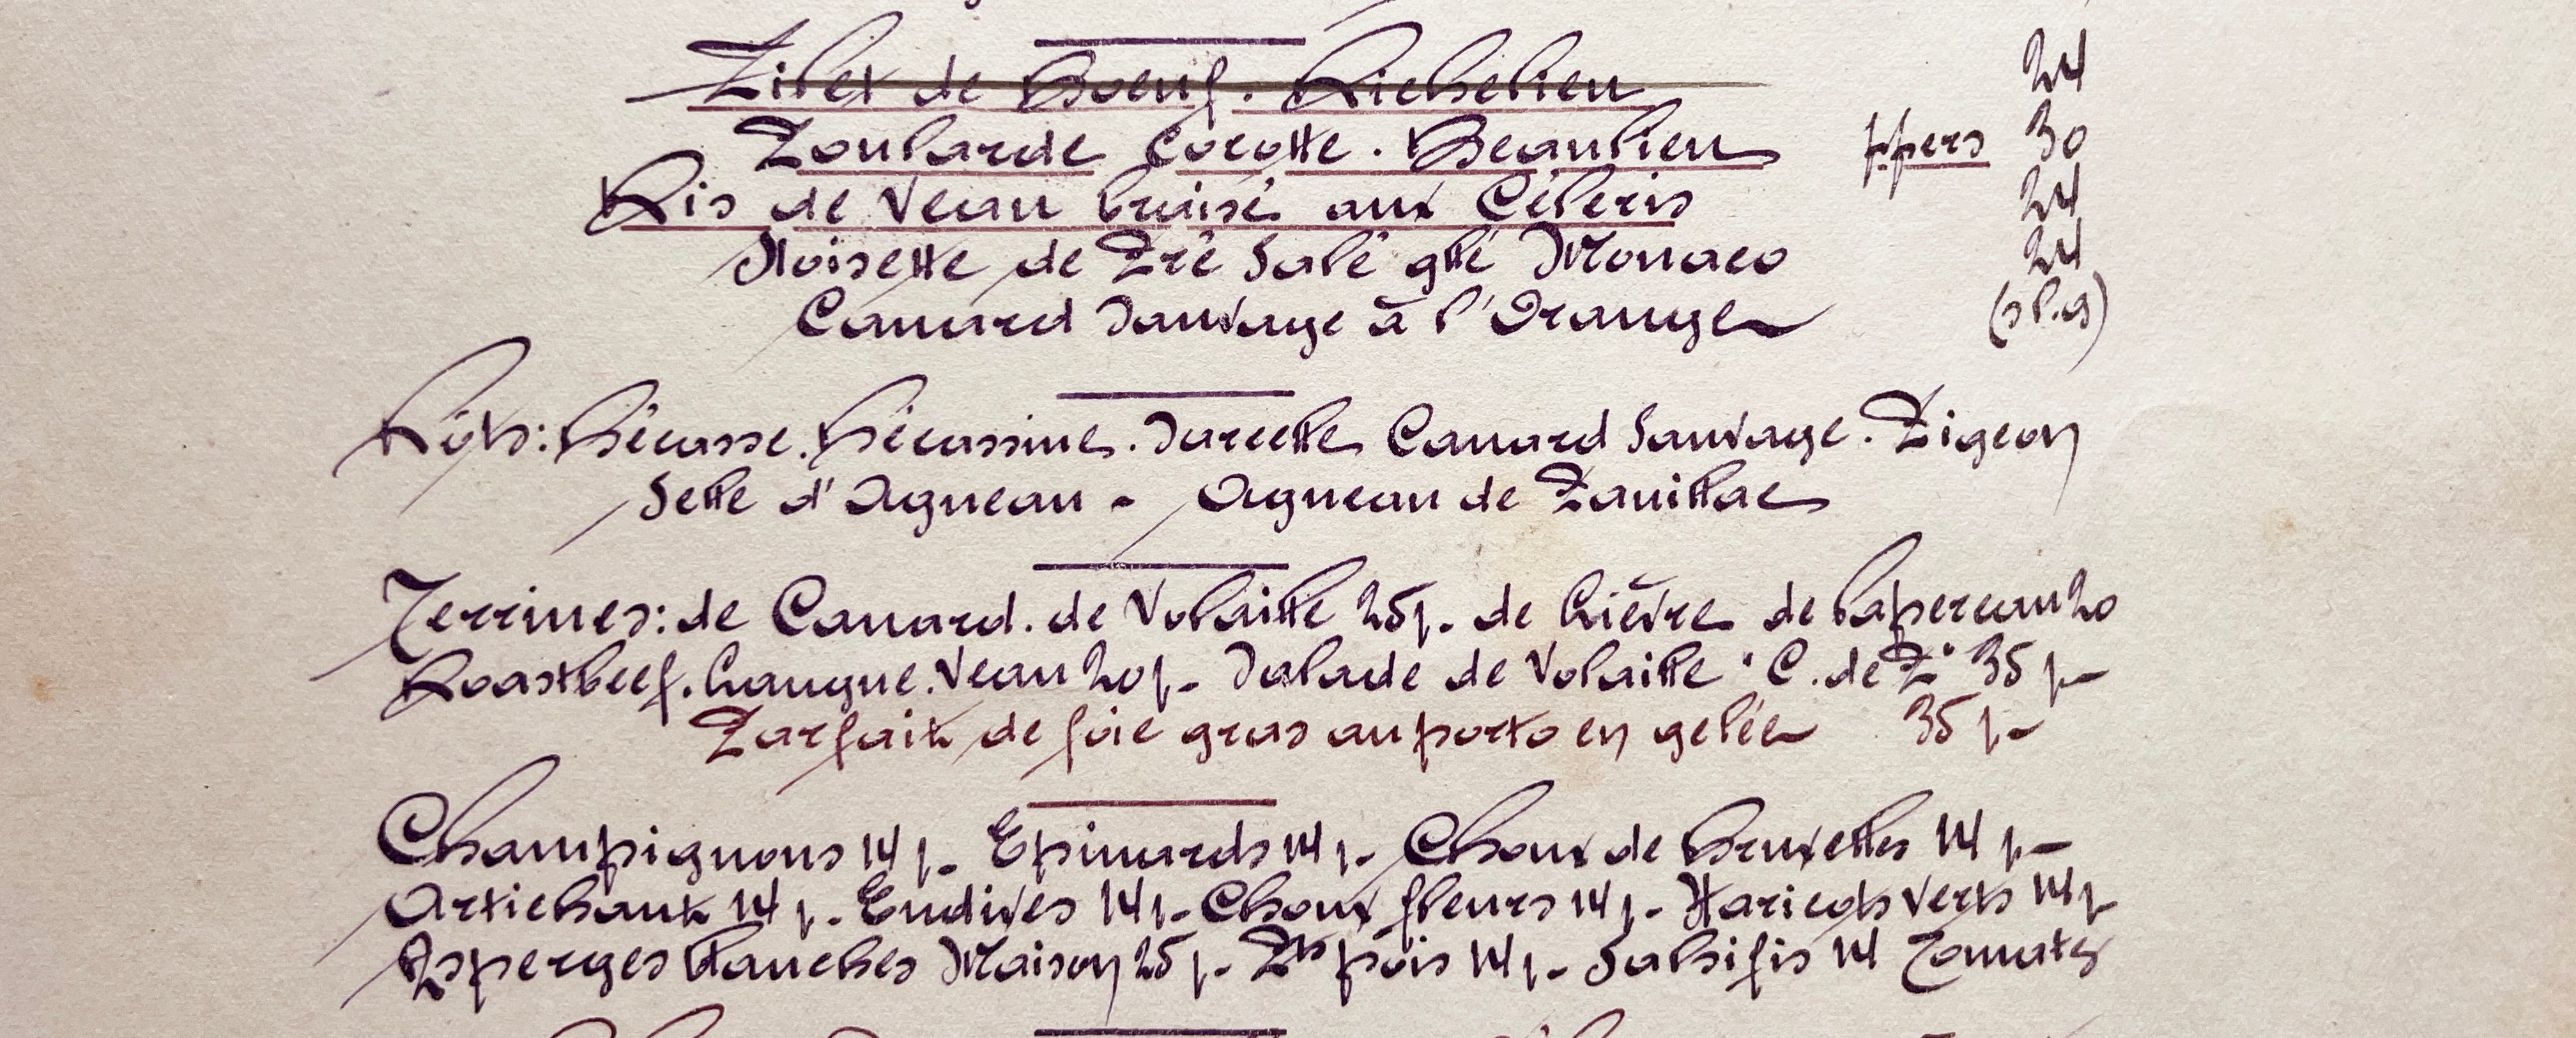 Filet de Boeuf. Richelieu 24
Poularde Cocotte. Beaulieu p.pers 30
Ris de Veau braisé aux Céleris 24
Noisette de Pré Salé gllé Monaco 24
Canard Sauvage à l'Orange (s l.g)
Rôts: Bécasse. Bécassine. Sarcelle Canard Sauvage. Pigeon
Selle d'Agneau - Agneau de Pauillac
Terrines: de Canard. de Volaille 25f. de lièvre de lapereau 20
Roastbeef. Langue. Veau 20f- Salade de Volaille "C. de P" 35 f-
Parfait de foie gras au porto en gelée 35 f-
Champignons 14 f- Epinards 14 f- Choux de Bruxelles 14 f-
Artichaut 14 f- Endives 14f- Choux fleurs 14 f- Haricots Verts 14f
Asperges Blanches Maison 25f- Pts pois 14f- Salsifis 14 Tomates